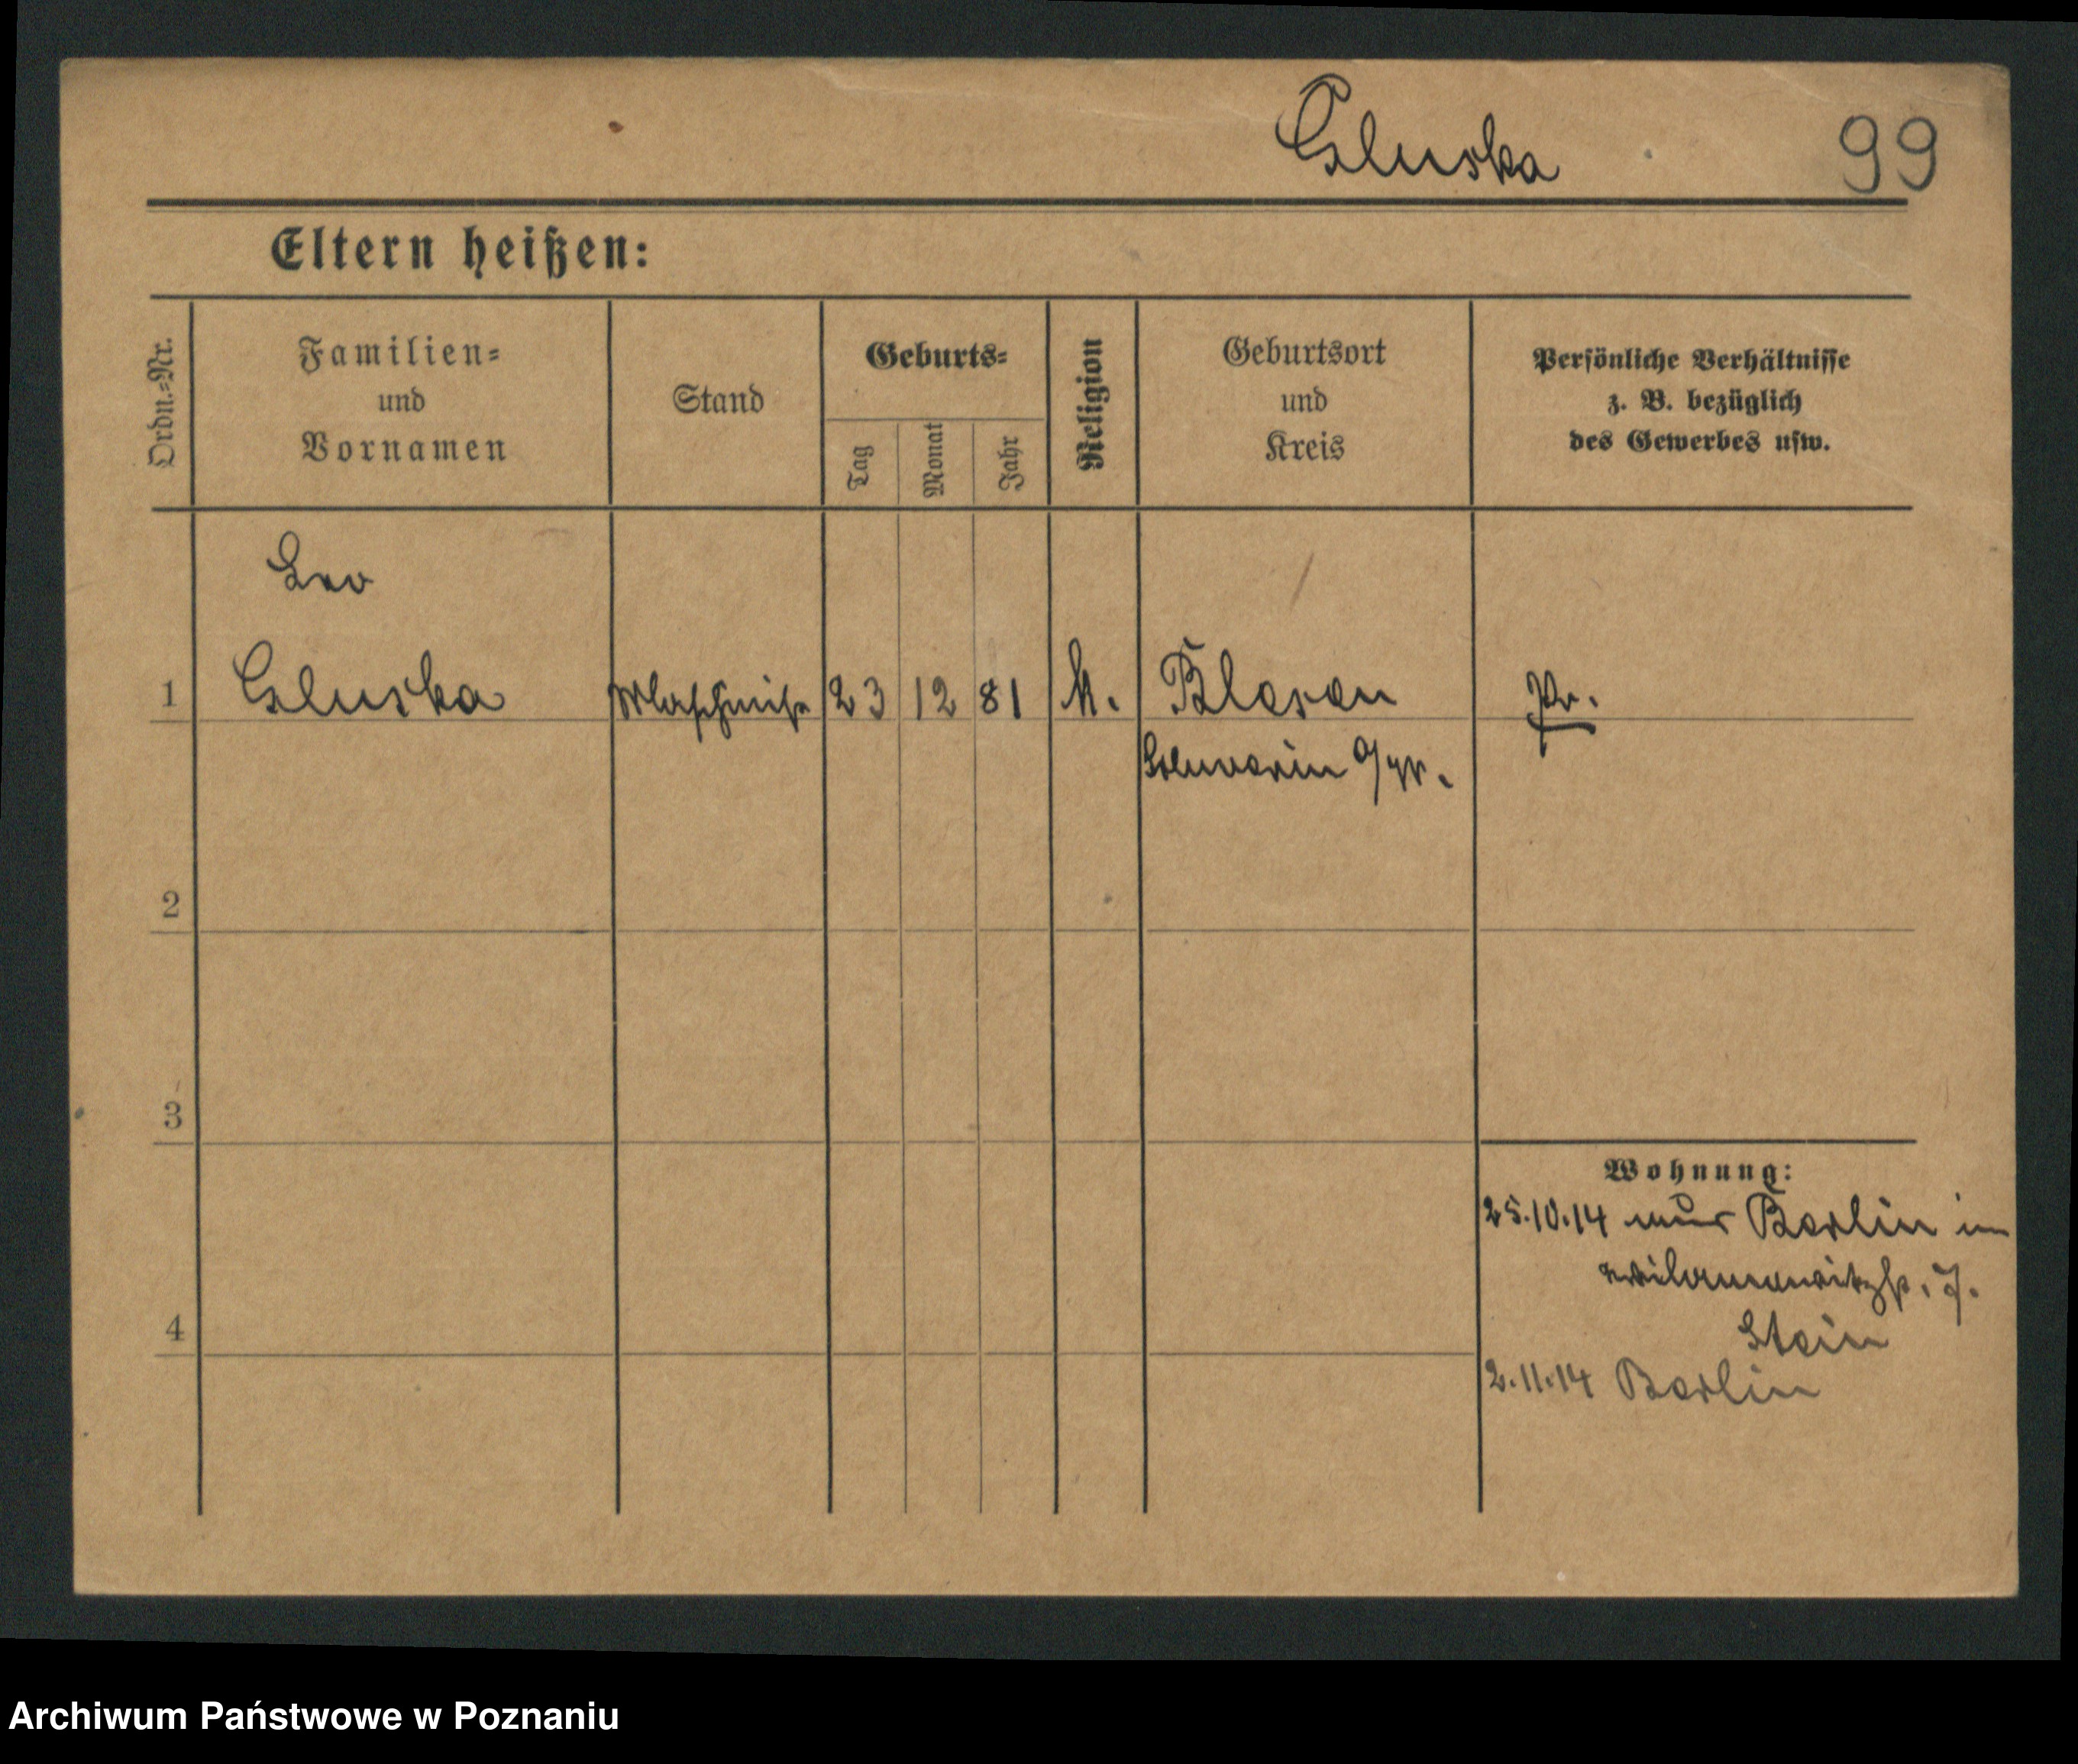 Gluska 99
Eltern heißen:
Ordn.-Nr.
Familien-
und
Vornamen
Stand
Geburts-
Tag
Monat
Jahr
Religion
Geburtsort
und
Kreis
Persönliche Verhältnisse
z. B. bezüglich
des Gewerbes usw.
Leo
1 Gluska 23 12 81 k. Blesen Pr.
Schwerin a/W.
2
3
Wohnung:
25.10.14 Berlin in
7.
4 Stein
2.11.14 Berlin
Archiwum Państwowe w Poznaniu